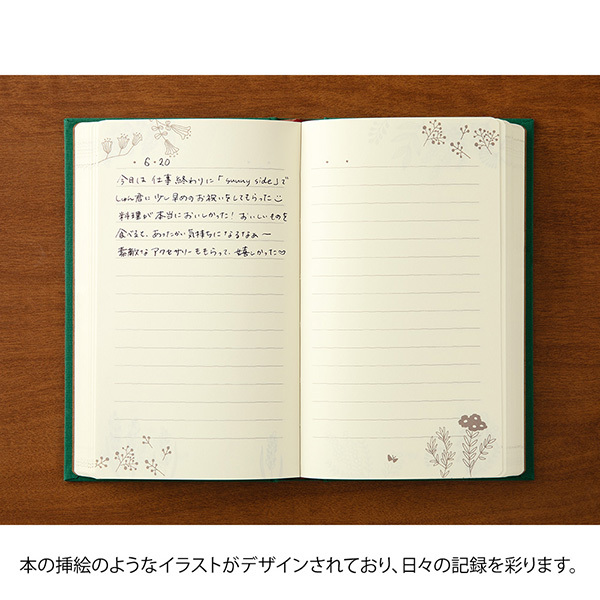 6・20
今日は 仕事終わりに「sunny side」で
しゅん君に 少し早めのお祝いをしてもらった
料理が本当においしかった! おいしいものを
食べると、あったかい気持ちになるなぁー
素敵なアクセサリーももらって、嬉しかった♡
本の挿絵のようなイラストがデザインされており、日々の記録を彩ります。